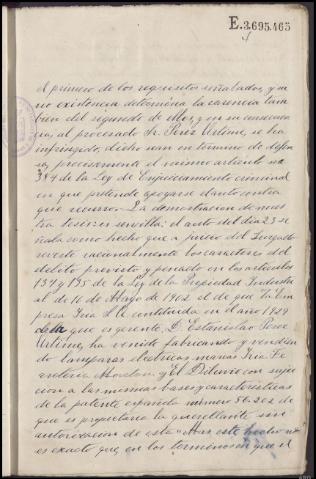 E.3.695.465
el primero de los requisitos señalados, y su
no existencia determina la carencia tam
bien del segundo de ellos, y en su consecuen
cia, al procesado Sr. Perez Urtime, se ha
infringido, dicho sea en término de defen
sa, precisamente el mismo articulo no
384 de la Ley de Enjuiciamiento criminal
en que pretende apoyarse el auto contra
que recurro. La demostración de nues
tra tesis es sencilla: el auto del dia 23 se
ñala como hecho que a juicio del Juzgado
reviste racionalmente los caracteres del
delito previsto y penado en los articulos
134 y 135 de la Ley de la Propiedad Industri
al de 16 de Mayo de 1902 el de que "la Em
presa Iria S.L. constituida en el año 1929
de la que es gerente, D. Estanislao Perez
Urtime, ha venido fabricando y vendien
do lamparas electricas marcas Iria, Fe
Abrolon y El Diluvio con suje
cion a las mismas bases y caracteristicas
de la patente española número 56.202 de
que es propietaria la querellante sin
autorizacion de esta". Mas este hecho no
es exacto que, en los terminos en que el